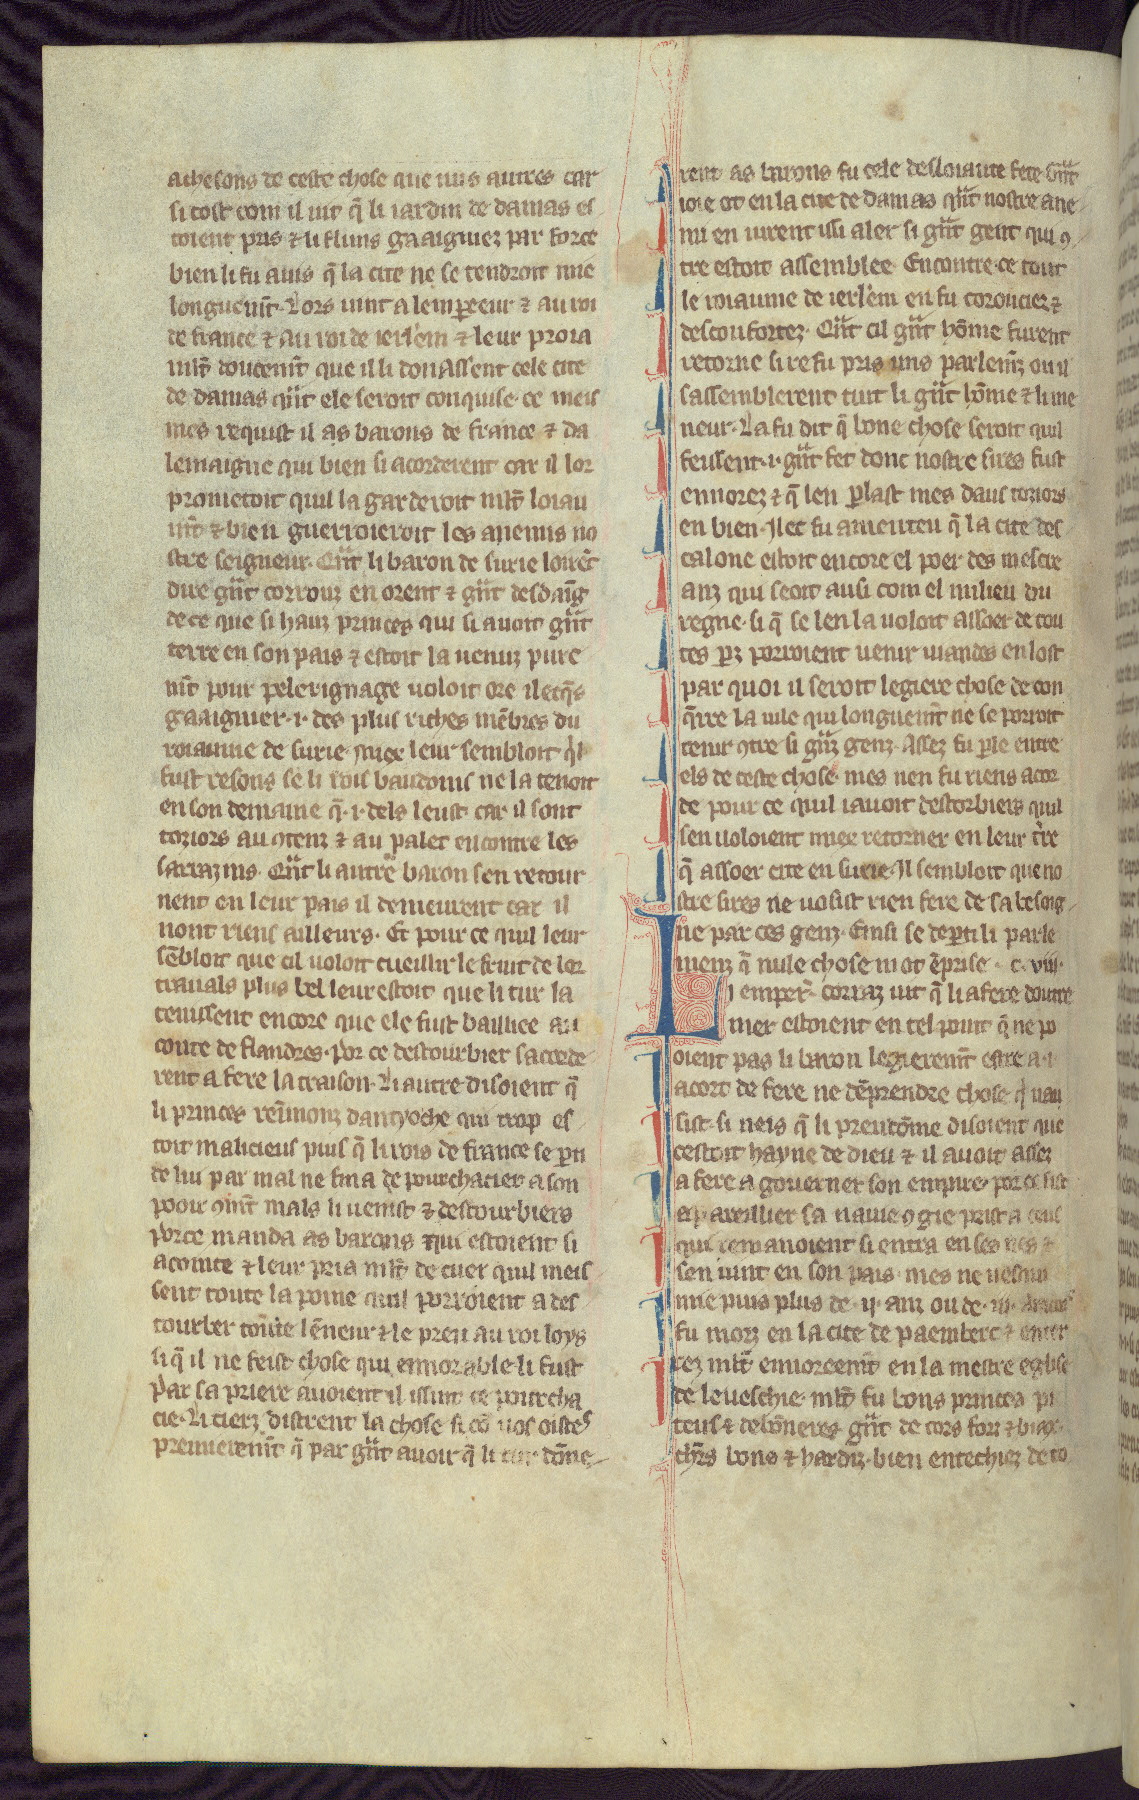 achesons de ceste chose que nus autres car
si tost com il vit q̃ li iardin de damas es
toient pris ⁊ li fluns gaaigniez par force
bien li fu auis q̃ la cite ne se tendroit mie
longuem̃t. Lors uint a lempereeur ⁊ au roi
de france ⁊ au roi de ierl'em ⁊ leur proia
ml't doucem̃t que il li donassent cele cite
de damas qñt ele seroit conquise. ce meis
mes requist il as barons de france ⁊ da
lemaigne qui bien si acorderent car il lor
prometoit quil la garderoit ml't loiau
m̃t ⁊ bien guerroieroit les anemis no
stre seigneur. Qñt li baron de surie loirẽt
dire gñt corrouz en orent ⁊ gñt desdaig̃
de ce que si hauz princes qui si auoit gñt
terre en son pais ⁊ estoit la uenuz pure
m̃t pour pelerignage uoloit ore ilecq̃s
gaaignier .i. des plus riches mẽbres du
roiaume de surie. miex leur sembloit q'l
fust resons se li rois baudoins ne la tenoit
en son demaine q̃ .i. dels leust car il sont
toziors au ꝯtenz ⁊ au palet encontre les
sarrazins. Qñt li autre baron sen retour
nent en leur pais il demeurent car il
nont riens ailleurs. Et pour ce quil leur
sẽbloit que cil uoloit cueillir le fruit de lor
trauals plus bel leur estoit que li tur la
tenissent encore que ele fust bailliee au
conte de flandres. por ce destourbier sacorde
rent a fere la traison. Li autre disoient q̃
li princes reimonz dantyoche qui trop es
toit malicieus puis q̃ li rois de france se pꝑti
de lui par mal ne fina de pourchacier a son
pooir ꝯm̃t mals li uenist ⁊ destourbiers
porce manda as barons qui estoient si
acointe ⁊ leur pria ml't de cuer quil meis
sent toute la poine quil porroient a des
tourber toute lẽneur ⁊ le preu au roi loys
si q̃ il ne feist chose qui ennorable li fust
par sa priere auoient il issint ce pourcha
cie. Li tierz distrent la chose si cõ uos oistes
premierem̃t q̃ par gñt auoir q̃ li tur dõne
rent as barons fu cele desloiaute fete. Gñt
ioie ot en la cite de damas qñt nostre ane
mi en uirent issi aler si gñt gent qui ꝯ
tre estoit assemblee. Encontre ce tout
le roiaume de ierl'em en fu corouciez ⁊
desconfortez. Qñt cil gñt hõme furent
retorne si refu pris uns parlemẽz ou il
sassemblerent tuit li gñt hõme ⁊ li me
neur. La fu dit q̃ bone chose seroit quil
feissent .i. gñt fet donc nostre sires fust
ennorez ⁊ q̃ len ꝑlast mes daus toziors
en bien. Ilec fu amenteu q̃ la cite des
calone estoit encore el poer des mescre
anz qui seoit ausi com el milieu du
regne. si q̃ se len la uoloit assoer de tou
tes ꝑz porroient uenir uiandes en lost
par quoi il seroit legiere chose de con
q̃rre la uile qui longuem̃t ne se porroit
tenir ꝯtre si gñz genz. Assez fu ꝑle entre
els de ceste chose. mes nen fu riens acor
de pour ce quil iauoit destorbiers quil
sen uoloient miex retorner en leur t̃re
q̃ assoer cite en surie. Il sembloit que no
stre sires ne uosist rien fere de sa besoig
ne par ces genz. Einsi se deꝑti li parle
menz q̃ nule chose niot ẽprise. c. viii.
Li emper̃. corraz uit q̃ li afere doutre
mer estoient en tel point q̃ ne po
oient pas li baron legierem̃t estre a .i.
acort de fere ne dẽprendre chose q̃ uau
sist. si neis q̃ li preudõme disoient que
cestoit hayne de dieu ⁊ il auoit assez
a fere a gouerner son empire. por ce fist
apareillier sa nauie ꝯgie prist a ceus
qui remanoient si entra en ses nes ⁊
sen uint en son pais. mes ne uesqui
mie puis plus de .ij. anz ou de .iij.
fu morz en la cite de paemberc ⁊ enter
rez ml't ennoreem̃t en la mestre eglise
de leueschie. ml't fu bons princes pi
teus ⁊ debõneres gñt de cors fort ⁊ biax.
chr̃s bons ⁊ hardiz. bien entechiez de to